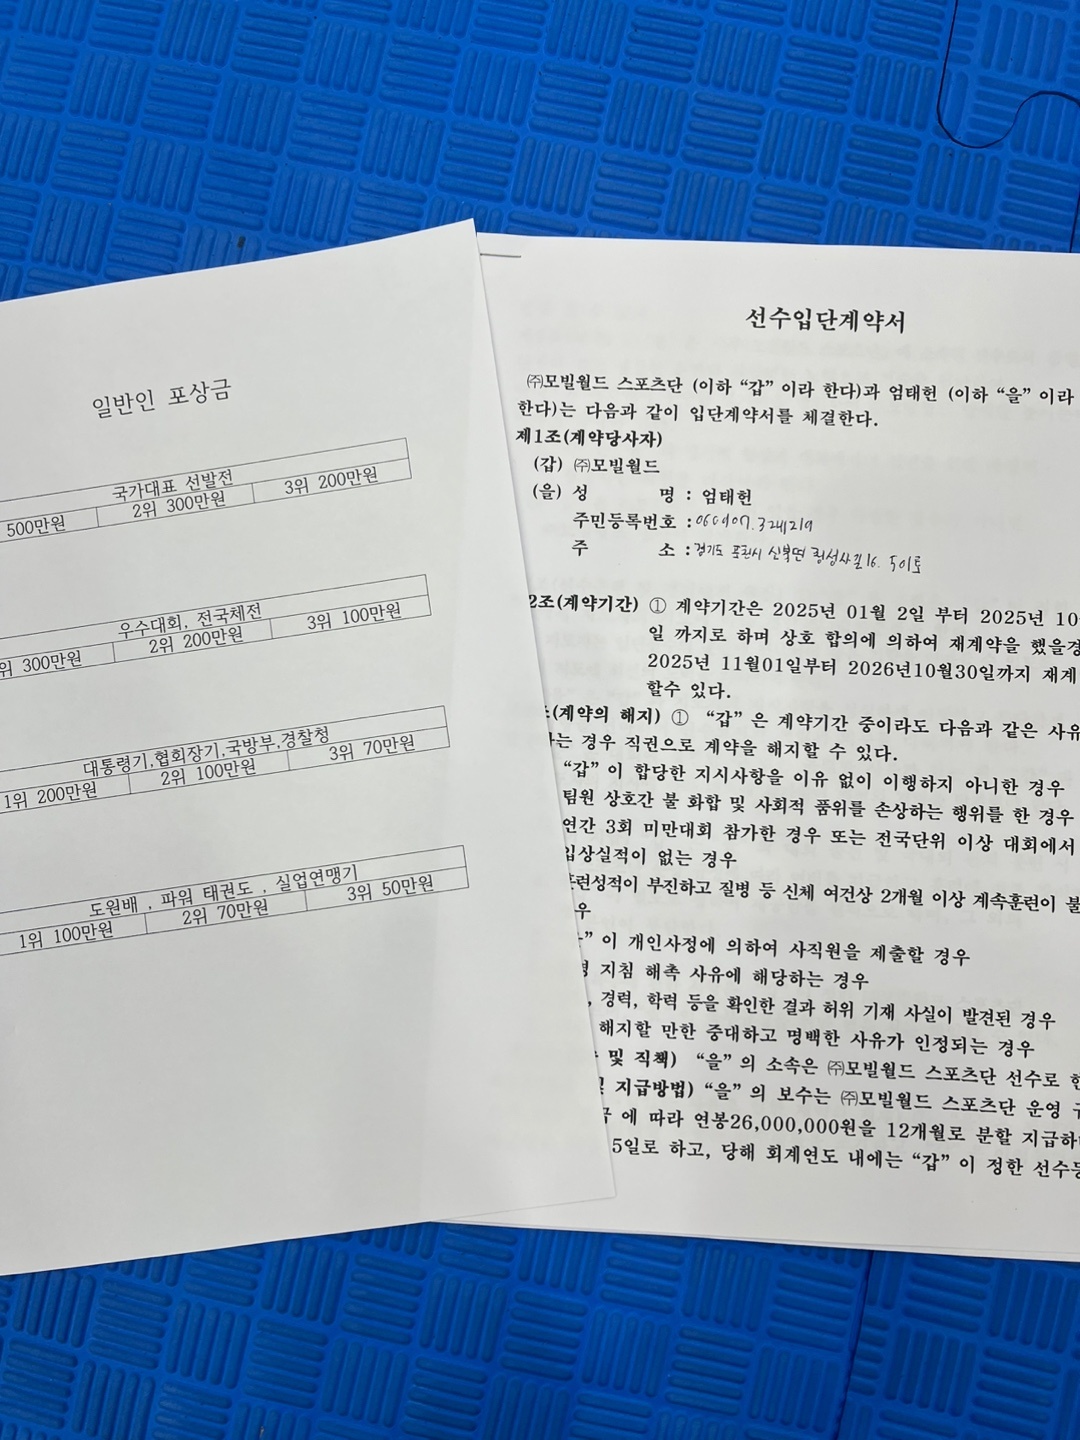 일반인 포상금
국가대표 선발전
500만원 2위 300만원 3위 200만원
우수대회, 전국체전
위 300만원 2위 200만원 3위 100만원
대통령기,협회장기,국방부,경찰청
1위 200만원 2위 100만원 3위 70만원
도원배 , 파워 태권도 , 실업연맹기
1위 100만원 2위 70만원 3위 50만원
선수입단계약서
㈜모빌월드 스포츠단 (이하 “갑” 이라 한다)과 엄태헌 (이하 “을” 이라
한다)는 다음과 같이 입단계약서를 체결한다.
제1조(계약당사자)
(갑) ㈜모빌월드
(을) 성 명 : 엄태헌
주민등록번호 :
주 소 : 경기도 포천시 신북면
2조(계약기간) ① 계약기간은 2025년 01월 2일 부터 2025년 10
일 까지로 하며 상호 합의에 의하여 재계약을 했을경
2025년 11월01일부터 2026년10월30일까지 재계
할수 있다.
(계약의 해지) ① “갑” 은 계약기간 중이라도 다음과 같은 사유
는 경우 직권으로 계약을 해지할 수 있다.
“갑” 이 합당한 지시사항을 이유 없이 이행하지 아니한 경우
팀원 상호간 불 화합 및 사회적 품위를 손상하는 행위를 한 경우
연간 3회 미만대회 참가한 경우 또는 전국단위 이상 대회에서
입상실적이 없는 경우
훈련성적이 부진하고 질병 등 신체 여건상 2개월 이상 계속훈련이 불
우
” 이 개인사정에 의하여 사직원을 제출할 경우
지침 해촉 사유에 해당하는 경우
, 경력, 학력 등을 확인한 결과 허위 기재 사실이 발견된 경우
해지할 만한 중대하고 명백한 사유가 인정되는 경우
및 직책) “을” 의 소속은 ㈜모빌월드 스포츠단 선수로 한
지급방법) “을” 의 보수는 ㈜모빌월드 스포츠단 운영
에 따라 연봉26,000,000원을 12개월로 분할 지급하
5일로 하고, 당해 회계연도 내에는 “갑” 이 정한 선수등